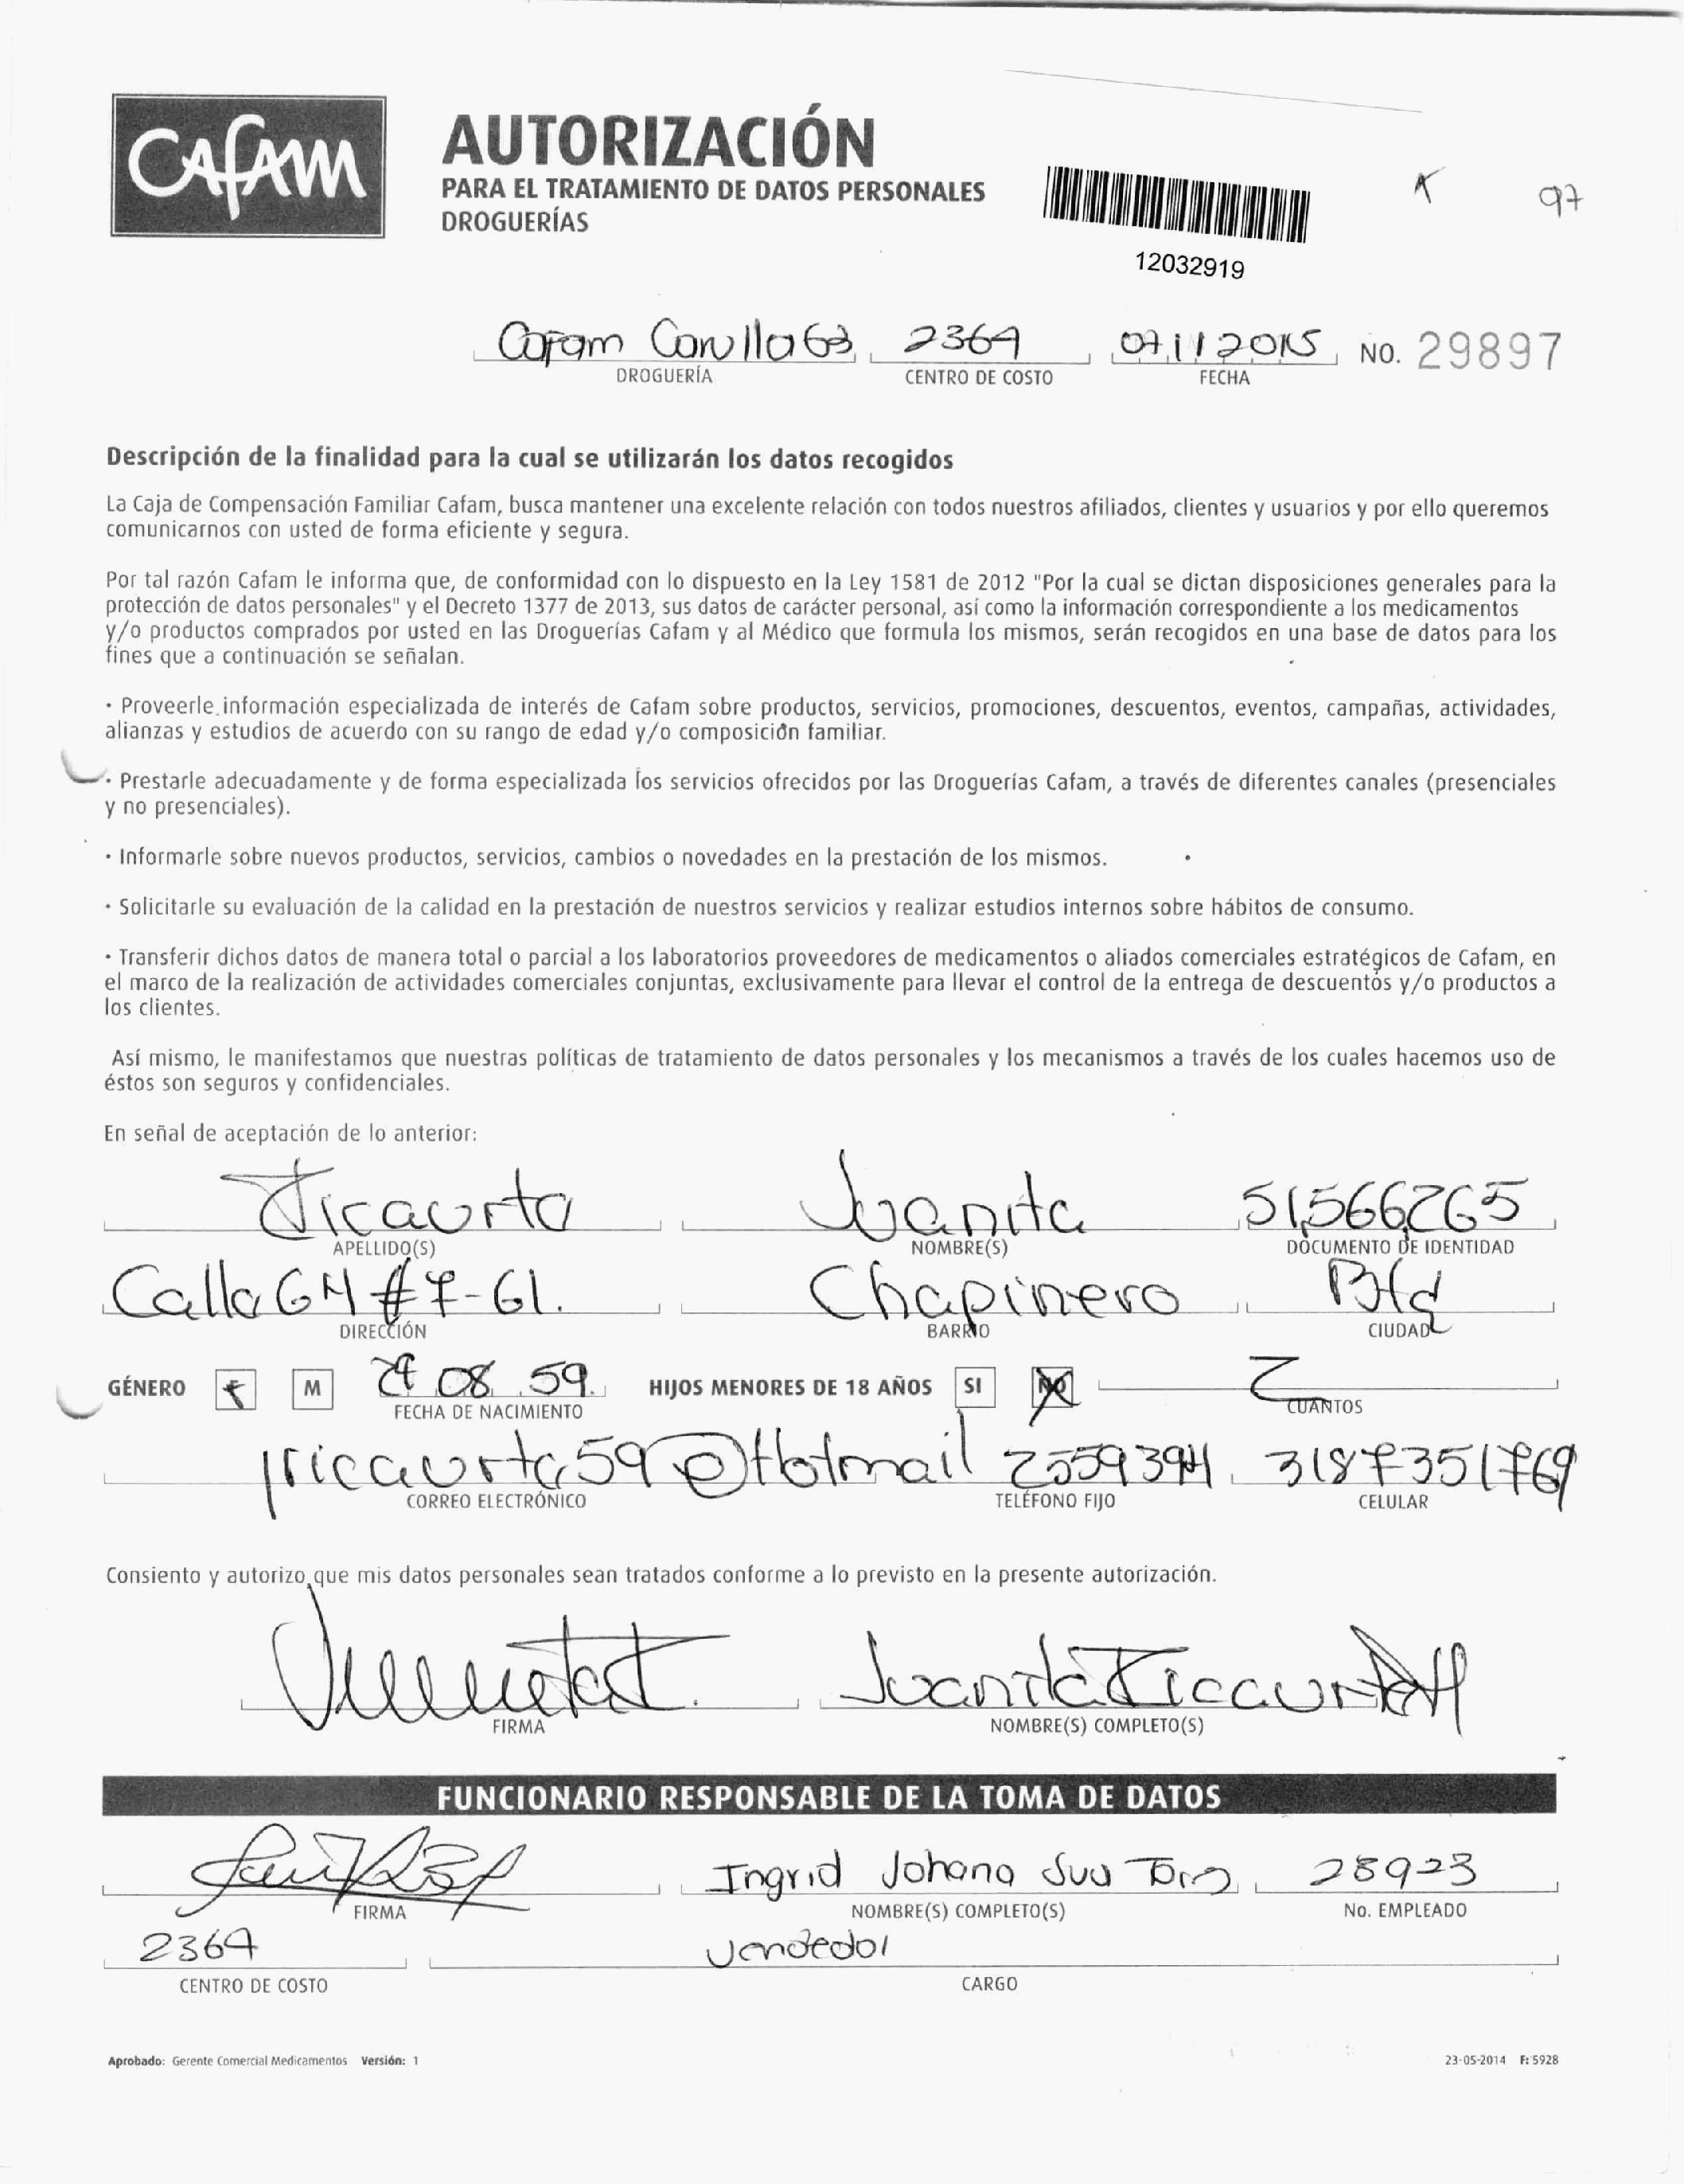 CAFAM
AUTORIZACIÓN
PARA EL TRATAMIENTO DE DATOS PERSONALES
DROGUERÍAS
97
12032919
Cafam Carulla 63 2364 07 11 2015 NO. 29897
DROGUERÍA CENTRO DE COSTO FECHA
Descripción de la finalidad para la cual se utilizarán los datos recogidos
La Caja de Compensación Familiar Cafam, busca mantener una excelente relación con todos nuestros afiliados, clientes y usuarios y por ello queremos
comunicarnos con usted de forma eficiente y segura.
Por tal razón Cafam le informa que, de conformidad con lo dispuesto en la Ley 1581 de 2012 "Por la cual se dictan disposiciones generales para la
protección de datos personales" y el Decreto 1377 de 2013, sus datos de carácter personal, así como la información correspondiente a los medicamentos
y/o productos comprados por usted en las Droguerías Cafam y al Médico que formula los mismos, serán recogidos en una base de datos para los
fines que a continuación se señalan.
· Proveerle información especializada de interés de Cafam sobre productos, servicios, promociones, descuentos, eventos, campañas, actividades,
alianzas y estudios de acuerdo con su rango de edad y/o composición familiar.
· Prestarle adecuadamente y de forma especializada los servicios ofrecidos por las Droguerías Cafam, a través de diferentes canales (presenciales
y no presenciales).
· Informarle sobre nuevos productos, servicios, cambios o novedades en la prestación de los mismos.
· Solicitarle su evaluación de la calidad en la prestación de nuestros servicios y realizar estudios internos sobre hábitos de consumo.
· Transferir dichos datos de manera total o parcial a los laboratorios proveedores de medicamentos o aliados comerciales estratégicos de Cafam, en
el marco de la realización de actividades comerciales conjuntas, exclusivamente para llevar el control de la entrega de descuentos y/o productos a
los clientes.
Así mismo, le manifestamos que nuestras políticas de tratamiento de datos personales y los mecanismos a través de los cuales hacemos uso de
éstos son seguros y confidenciales.
En señal de aceptación de lo anterior:
Ricaurte Juanita 51,566,265
APELLIDO(S) NOMBRE(S) DOCUMENTO DE IDENTIDAD
Calle 64 #7-61. Chapinero Btá
DIRECCIÓN BARRIO CIUDAD
GÉNERO F M 29 08 59. HIJOS MENORES DE 18 AÑOS SI NO 2
FECHA DE NACIMIENTO CUANTOS
jricaurte59@Hotmail 2559394 3187351769
CORREO ELECTRÓNICO TELÉFONO FIJO CELULAR
Consiento y autorizo que mis datos personales sean tratados conforme a lo previsto en la presente autorización.
Juanita Ricaurte
FIRMA NOMBRE(S) COMPLETO(S)
FUNCIONARIO RESPONSABLE DE LA TOMA DE DATOS
Ingrid Johana Sua Toro 28923
FIRMA NOMBRE(S) COMPLETO(S) No. EMPLEADO
2364 Vendedor
CENTRO DE COSTO CARGO
Aprobado: Gerente Comercial Medicamentos Versión: 1 23-05-2014 F: 5928